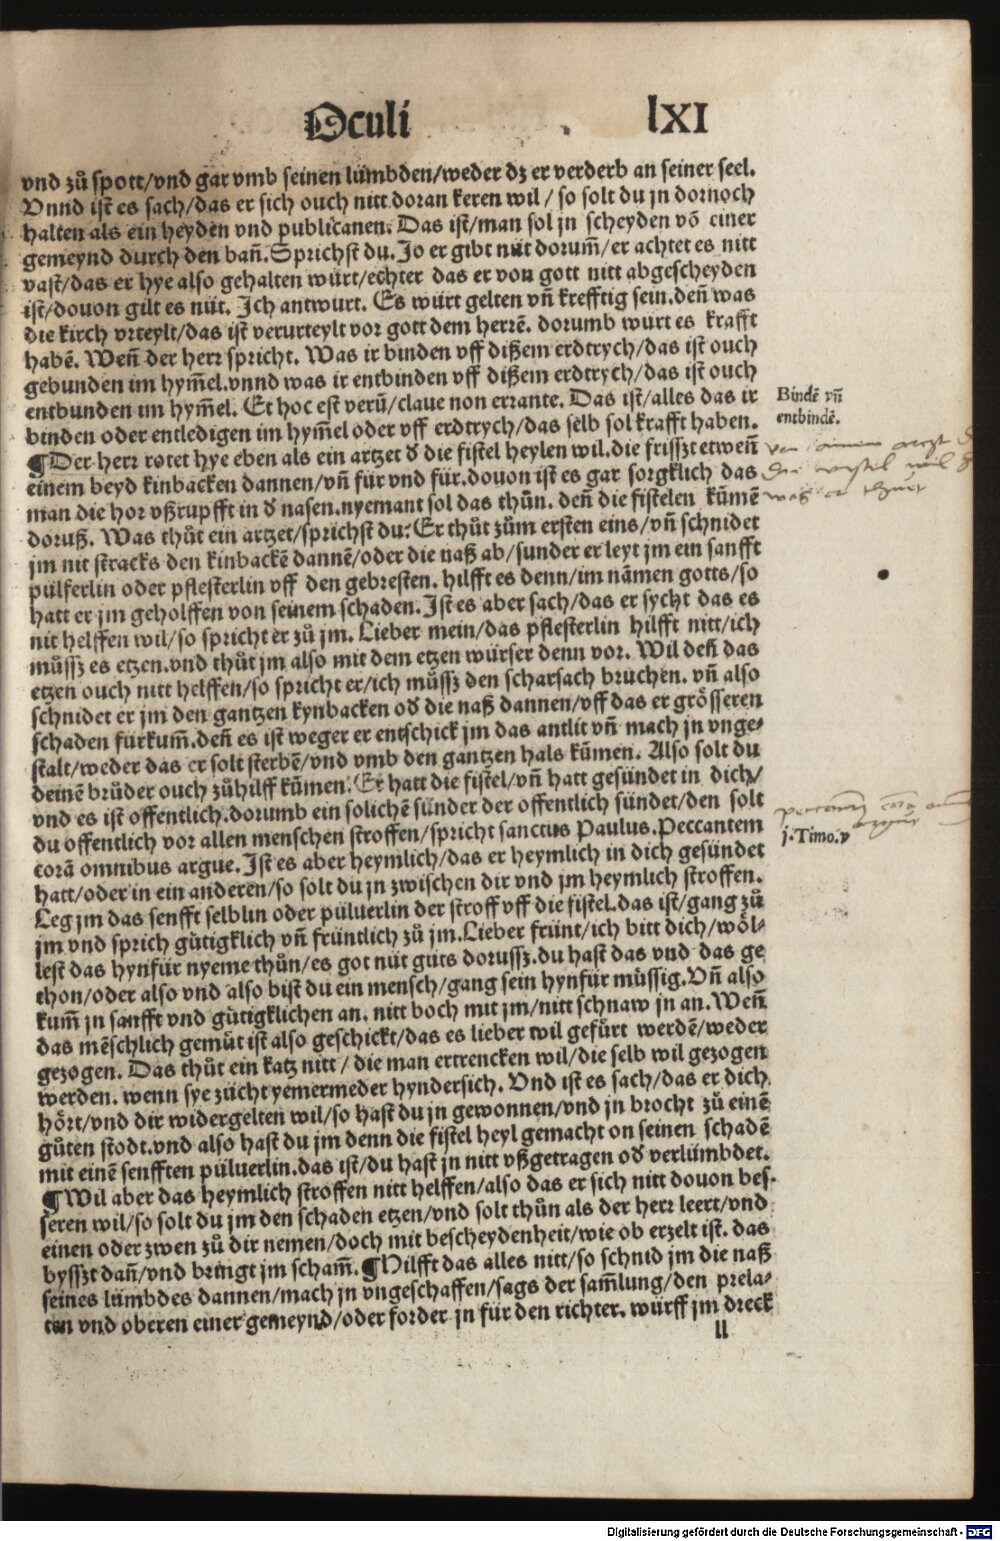 Oculi lxi
vnd zů spott/vnd gar vmb seinen lümbden/weder dz er verderb an seiner seel.
Vnnd ist es sach/das er sich ouch nitt doran keren wil/so solt du jn dornoch
halten als ein heyden vnd publicanen. Das ist/man sol jn scheyden võ einer
gemeynd durch den bañ. Sprichst du. Jo er gibt nüt dorum̃/er achtet es nitt
vast/das er hye also gehalten würt/echter das er von gott nitt abgescheyden
ist/douon gilt es nüt. Jch antwurt. Es würt gelten vñ krefftig sein. deñ was
die kirch vrteylt/das ist verurteylt vor gott dem herrẽ. dorumb würt es krafft
habẽ. Weñ der herr spricht. Was ir binden vff dißem erdtrych/das ist ouch
gebunden im hym̃el. vnnd was ir entbinden vff dißem erdtrych/das ist ouch
entbunden im hym̃el. Et hoc est verũ/claue non errante. Das ist/alles das ir
binden oder entledigen im hym̃el oder vff erdtrych/das selb sol krafft haben.
Bindẽ vñ
entbindẽ.
¶Der herr rotet hye eben als ein artzet d̕ die fistel heylen wil. die frisszt etweñ
einem beyd kinbacken dannen/vñ für vnd für. douon ist es gar sorgklich das
man die hor vßrupfft in d̕ nasen. nyemant sol das thůn. deñ die fistelen kům̃e
doruß. Was thůt ein artzet/sprichst du? Er thůt zům ersten eins/vñ schnidet
jm nit stracks den kinbackẽ dannẽ/oder die naß ab/sunder er leyt jm ein sanfft
pülferlin oder pflesterlin vff den gebresten. hilfft es denn/im nãmen gotts/so
hatt er jm geholffen von seinem schaden. Jst es aber sach/das er sycht das es
nit helffen wil/so spricht er zů jm. Lieber mein/das pflesterlin hilfft nitt/ich
můssz es etzen. vnd thůt jm also mit dem etzen würser denn vor. Wil deñ das
etzen ouch nitt helffen/so spricht er/ich můssz den scharsach bruchen. vñ also
schnidet er jm den gantzen kynbacken od̕ die naß dannen/vff das er grösseren
schaden fürkum̃. deñ es ist weger er entschick jm das antlit vñ mach jn vnge-
stalt/weder das er solt sterbẽ/vnd vmb den gantzen hals kům̃en. Also solt du
deinẽ brüder ouch zůhilff kům̃en. Er hatt die fistel/vñ hatt gesündet in dich/
vnd es ist offentlich. dorumb ein solichẽ sünder der offentlich sündet/den solt
du offentlich vor allen menschen stroffen/spricht sanctus Paulus. Peccantem
j. Timo. v
corã omnibus argue. Jst es aber heymlich/das er heymlich in dich gesündet
hatt/oder in ein anderen/so solt du jn zwischen dir vnd jm heymlich stroffen.
Leg jm das senfft selblin oder püluerlin der stroff vff die fistel. das ist/gang zů
jm vnd sprich gütigklich vñ früntlich zů jm. Lieber frünt/ich bitt dich/wöl-
lest das hynfür nyeme thůn/es got nüt güts dorussz. du hast das vnd das ge
thon/oder also vnd also bist du ein mensch/gang sein hynfür müssig. Vñ also
kum̃ jn sanfft vnd gütigklichen an. nitt boch mit jm/nitt schnaw jn an. Weñ
das mẽschlich gemüt ist also geschickt/das es lieber wil gefürt werdẽ/weder
gezogen. Das thůt ein katz nitt/die man ertrencken wil/die selb wil gezogen
werden. wenn sye zücht yemermeder hyndersich. Vnd ist es sach/das er dich
hört/vnd dir widergelten wil/so hast du jn gewonnen/vnd jn brocht zů einẽ
gůten stodt. vnd also hast du jm denn die fistel heyl gemacht on seinen schadẽ
mit einẽ senfften püluerlin. das ist/du hast jn nitt vßgetragen od̕ verlümbdet.
¶Wil aber das heymlich stroffen nitt helffen/also das er sich nitt douon bes-
seren wil/so solt du jm den schaden etzen/vnd solt thůn als der herr leert/vnd
einen oder zwen zů dir nemen/doch mit bescheydenheit/wie ob erzelt ist. das
bysszt dañ/vnd bringt jm scham̃. ¶Hilfft das alles nitt/so schnid jm die naß
seines lümbdes dannen/mach jn vngeschaffen/sags der sam̃lung/den prela-
ten vnd oberen einer gemeynd/oder forder jn für den richter. würff jm dreck
ll
Digitalisierung gefördert durch die Deutsche Forschungsgemeinschaft - DFG